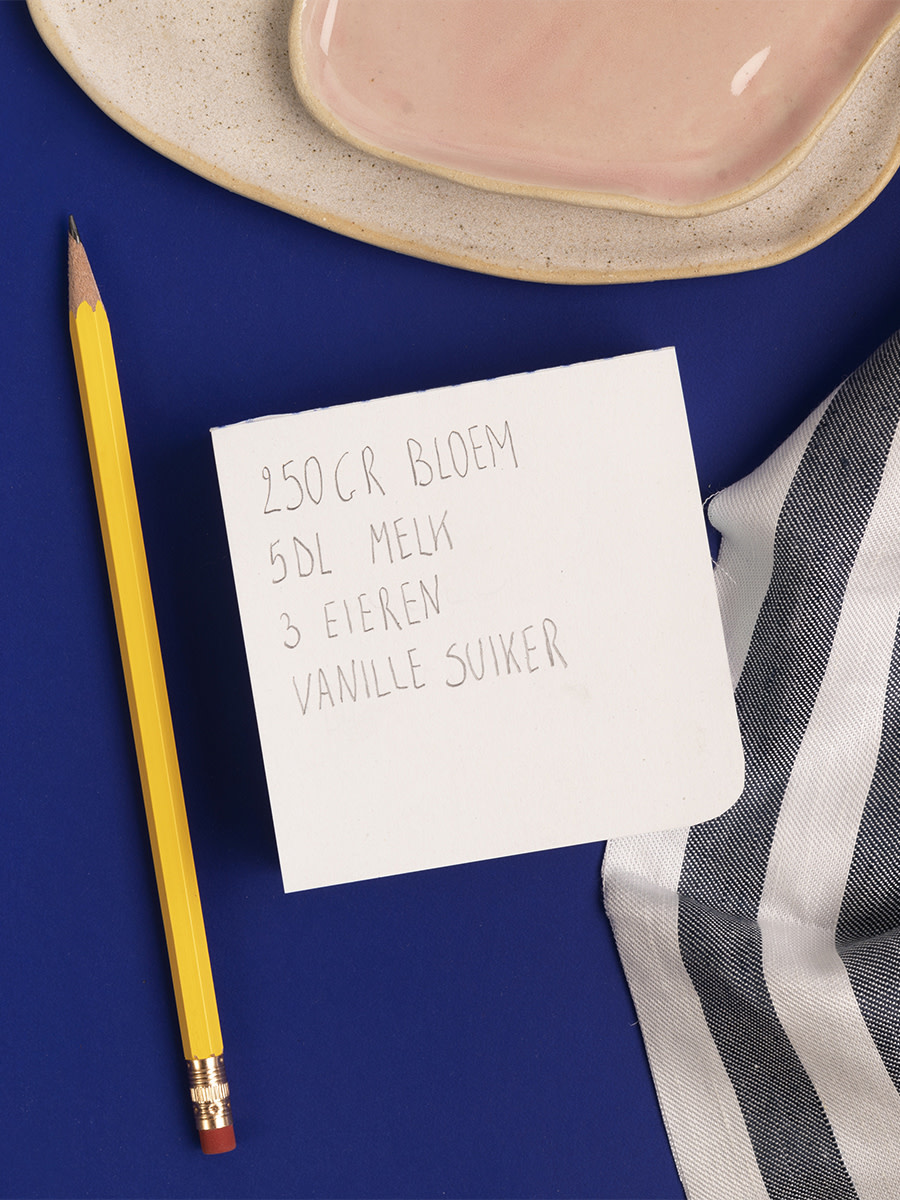 250GR BLOEM
5DL MELK
3 EIEREN
VANILLE SUIKER